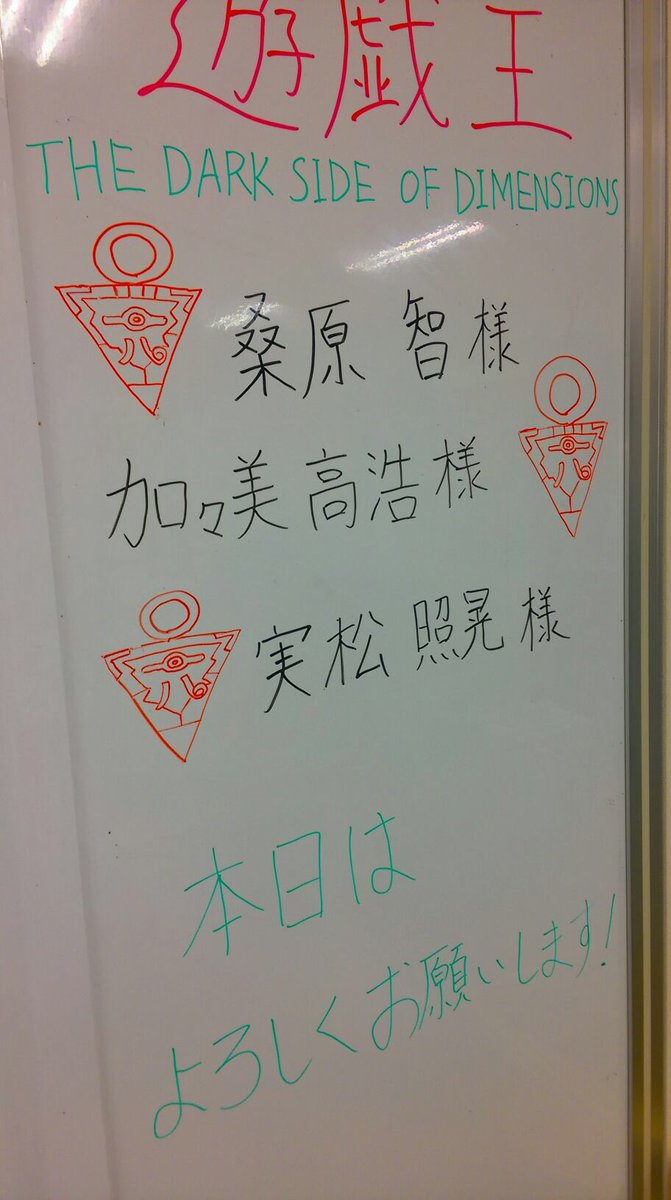 遊戯王
THE DARK SIDE OF DIMENSIONS
桑原 智様
加々美 高浩様
実松 照晃様
本日は
よろしくお願いします!